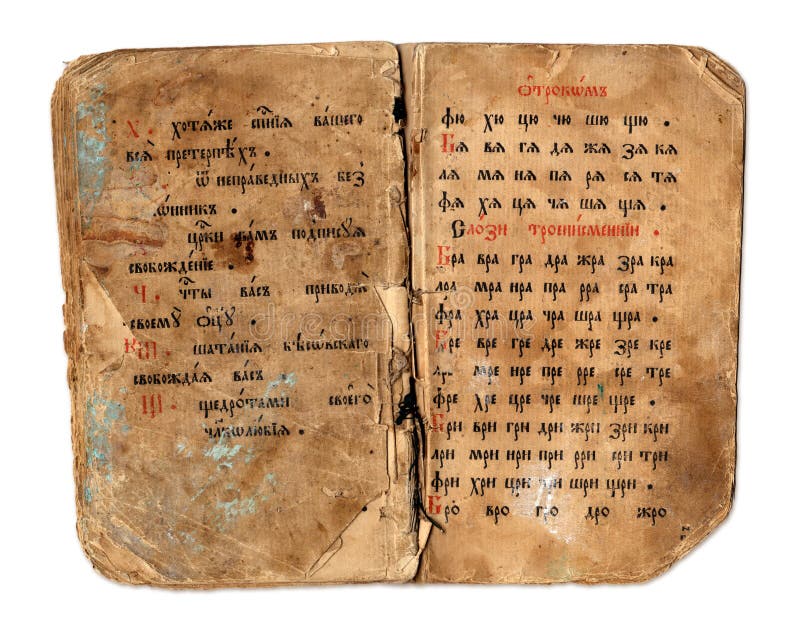 Х · хотѧ́же сп҃нїѧ ва́шего
всѧ̀ претерпѣ́хъ ·
ѿ непра́ведныхъ без
ѡ́нникъ ·
цр҃ки ва́мъ подписꙋѧ
свобожде́нїе ·
Ч · чт҃ы ва́съ приводѧ̀
своемꙋ̀ ѻц҃ꙋ̀ ·
Ш · шата́нїѧ бѣсо́вскаго
свобожда́ѧ ва́съ
Щ · щедро́тами своегѡ̀
чл҃ѡлю́бїѧ ·
ѻ҆трокѡ́мъ
фю хю цю чю шю щю ·
Бѧ вѧ гѧ дѧ жѧ зѧ кѧ
лѧ мѧ нѧ пѧ рѧ сѧ тѧ
фѧ хѧ цѧ чѧ шѧ щѧ ·
Сло́зи трои́сменнїи ·
Бра вра гра дра жра зра кра
лра мра нра пра рра сра тра
фра хра цра чра шра щра ·
Бре вре гре дре жре зре кре
лре мре нре пре рре сре тре
фре хре цре чре шре щре ·
Бри ври гри дри жри зри кри
лри мри нри при рри сри три
фри хри цри чри шри щри ·
Бро вро гро дро жро
dreamstime